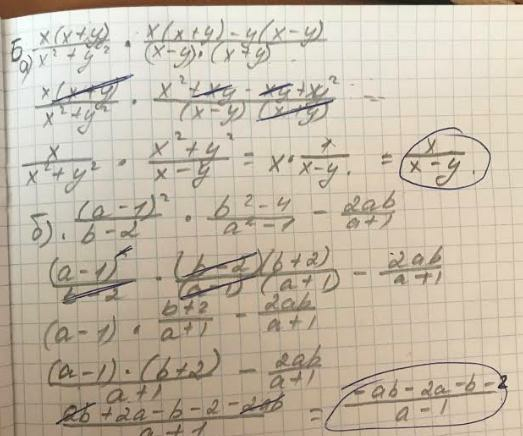 Б.
а) x(x+y)/(x²+y²) · (x(x+y)-y(x-y))/((x-y)·(x+y))
x(x+y)/(x²+y²) · (x²+xy-xy+y²)/((x-y)(x+y)) =
x/(x²+y²) · (x²+y²)/(x-y) = x · 1/(x-y). = x/(x-y).
б). (a-1)²/(b-2) · (b²-4)/(a²-1) - 2ab/(a+1)
(a-1)²/(b-2) · (b-2)(b+2)/((a-1)(a+1)) - 2ab/(a+1)
(a-1) · (b+2)/(a+1) - 2ab/(a+1)
(a-1)·(b+2)/(a+1) - 2ab/(a+1)
(ab+2a-b-2-2ab)/(a+1) = (-ab-2a-b-2)/(a-1)